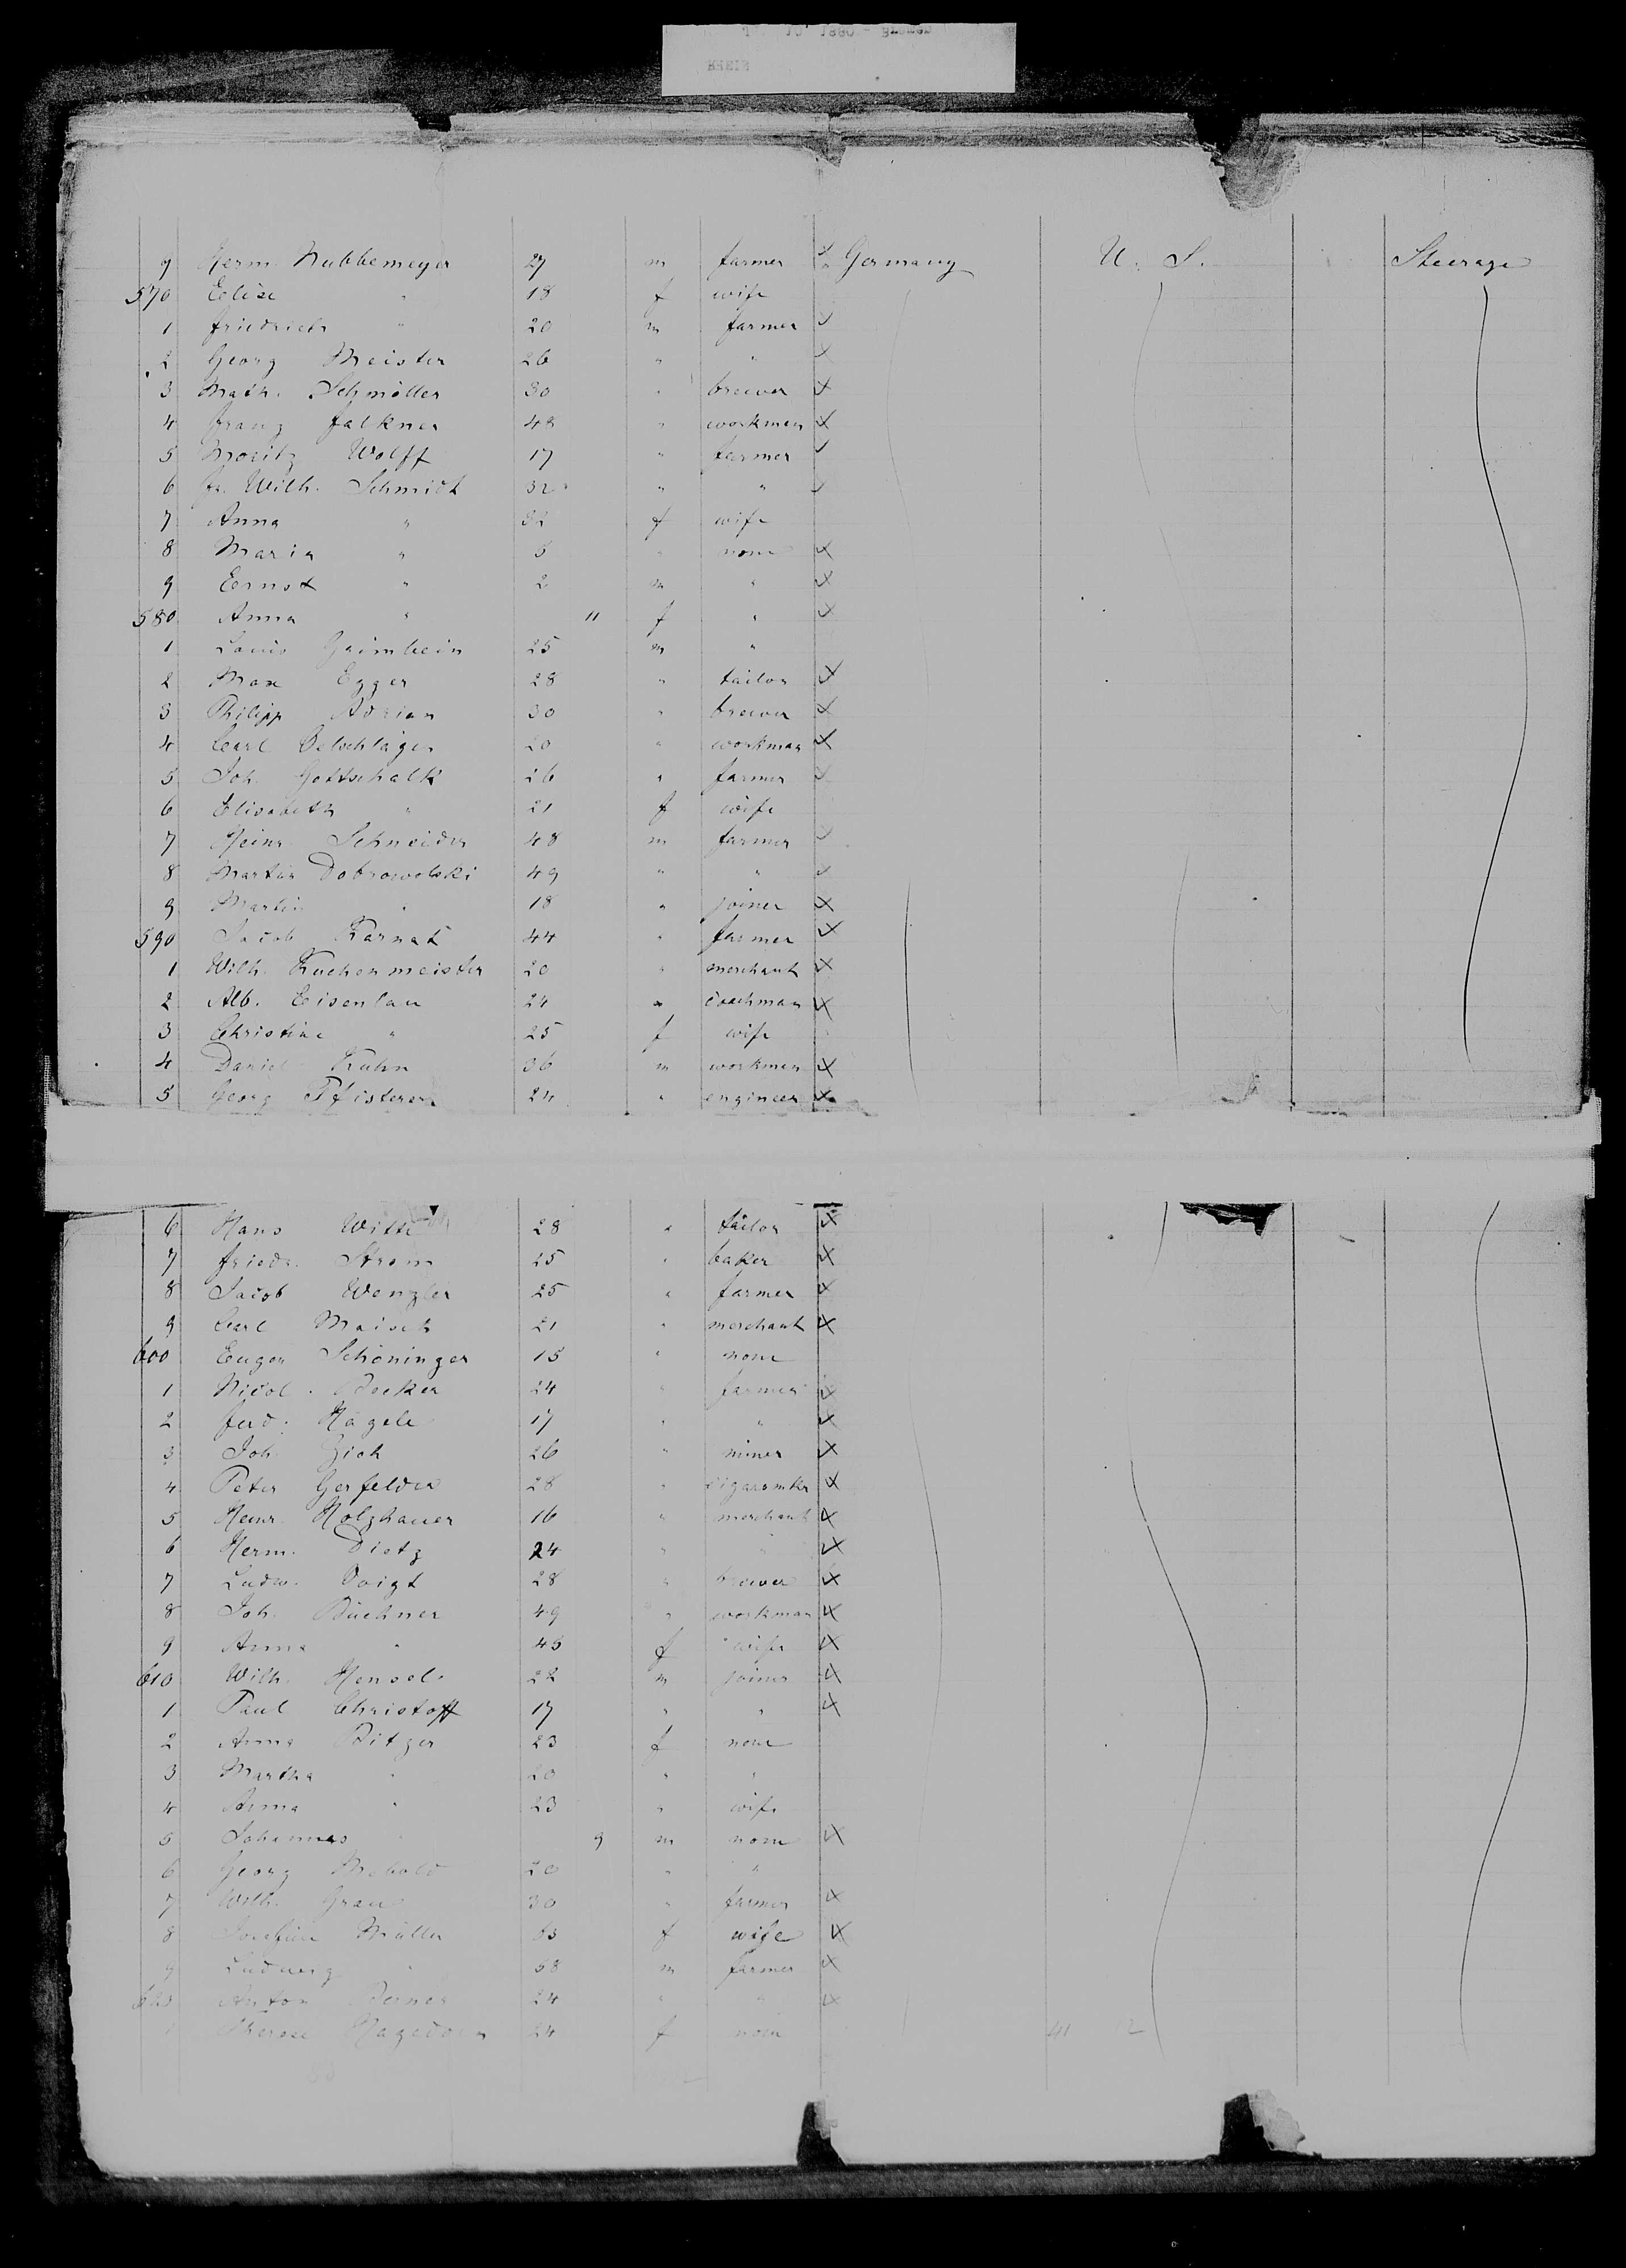 10 1880 - Bremen
RHEIN
9 Herm. Nubbemeyer 27 m farmer Germany U. S. Steerage
570 Elise " 18 f wife
1 Friedrich " 20 m farmer
2 Georg Meister 26 " "
3 Math. Schmöller 30 " brewer
4 Franz Falkner 48 " workman
5 Moritz Wolff 17 " farmer
6 Fr. Wilh. Schmidt 32 " "
7 Anna " 32 f wife
8 Maria " 5 " none
9 Ernst " 2 m "
580 Anna " 11 f "
1 Louis Grimbein 25 m "
2 Max Egger 28 " tailor
3 Philipp Adrian 30 " brewer
4 Carl Oelschläger 20 " workman
5 Joh. Gottschalk 26 " farmer
6 Elisabeth " 21 f wife
7 Heinr. Schneider 48 m farmer
8 Martin Dobrowolski 49 " "
9 Martin " 18 " joiner
590 Jacob Karnat 44 " farmer
1 Wilh. Kuchenmeister 20 " merchant
2 Alb. Eisenlau 24 " coachman
3 Christine " 25 f wife
4 Daniel Kuhn 36 m workman
5 Georg Pfisterer 24 " engineer
6 Hans Witte 28 " tailor
7 Friedr. Strom 25 " baker
8 Jacob Wenzler 25 " farmer
9 Carl Maisch 21 " merchant
600 Eugen Schöninger 15 " none
1 Nicol. Becker 24 " farmer
2 Ferd. Hägele 17 " "
3 Joh. Zich 26 " miner
4 Peter Gerfelder 28 " cigarmkr
5 Heinr. Holzhauer 16 " merchant
6 Herm. Dietz 24 " "
7 Ludw. Voigt 28 " brewer
8 Joh. Büchner 49 " workman
9 Anna " 45 f wife
610 Wilh. Hensel 22 m joiner
1 Paul Christoff 17 " "
2 Anna Bitzer 23 f none
3 Martha " 20 " "
4 Anna " 23 " wife
5 Johannes " 9 m none
6 Georg Mebold 20 " "
7 Wilh. Grau 30 " farmer
8 Josefine Müller 53 f wife
9 Ludwig " 58 m farmer
620 Anton 24 " "
1 Therese Hagedorn 24 f none 41 12